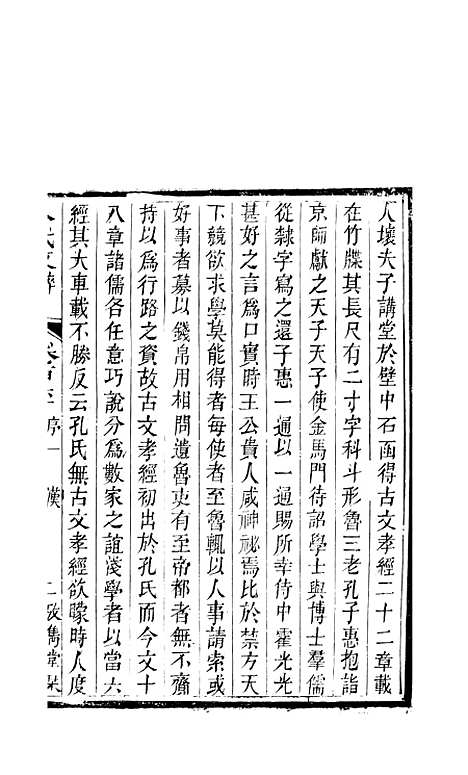 人壞夫子講堂於壁中石函得古文孝經二十二章載
在竹牒其長尺有二寸字科斗形魯三老孔子惠抱詣
京師獻之天子天子使金馬門待詔學士與博士羣儒
從隸字寫之還子惠一通以一通賜所幸侍中霍光光
甚好之言爲口實時王公貴人咸神祕焉比於禁方天
下競欲求學莫能得者每使者至魯輒以人事請索或
好事者募以錢帛用相問遺魯吏有至帝都者無不齎
持以爲行路之資故古文孝經初出於孔氏而今文十
八章諸儒各任意巧說分爲數家之誼淺學者以當六
經其大車載不勝反云孔氏無古文孝經欲矇時人度
序一 漢 二